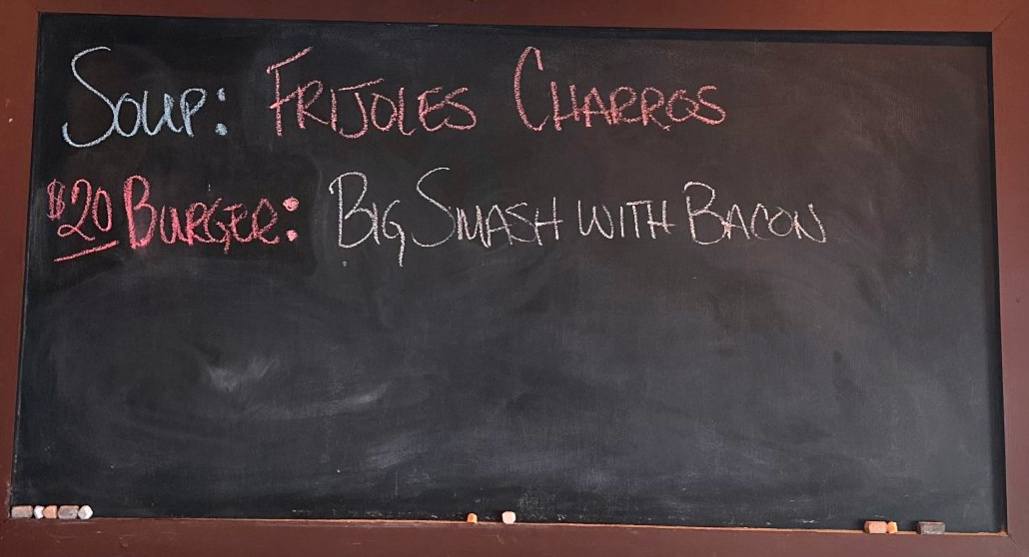 Soup: Frijoles Charros
$20 Burger: Big Smash with Bacon